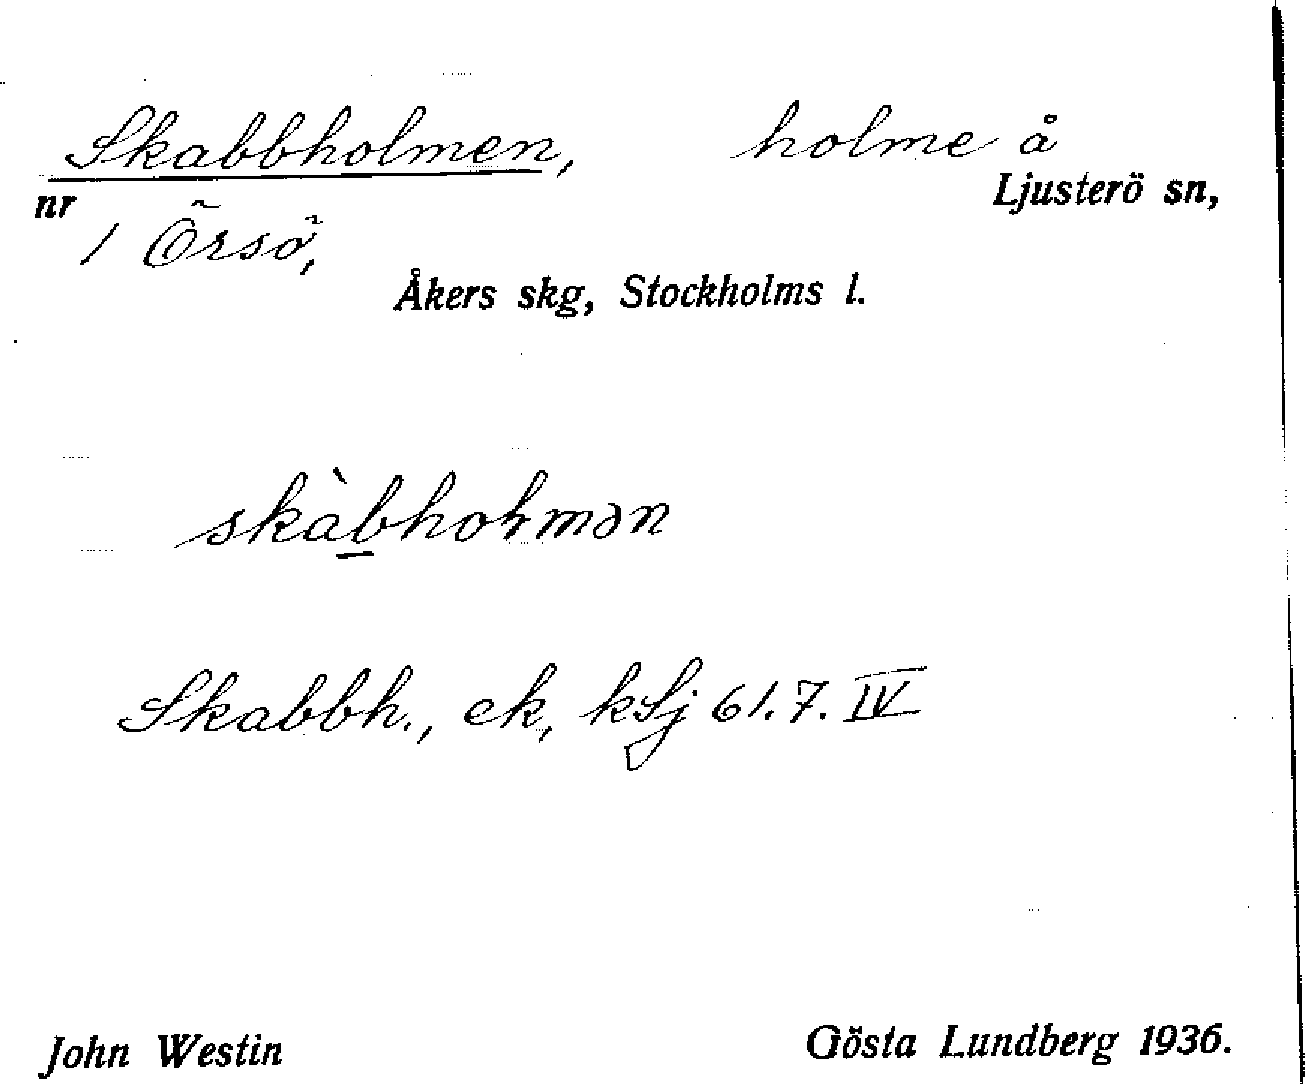 Skabbholmen, holme å
Ljusterö sn,
nr
1 Örsö,
Åkers skg, Stockholms l.
skàbholmən
Skabbh., ek, kLj 61.7. IV
John Westin Gösta Lundberg 1936.